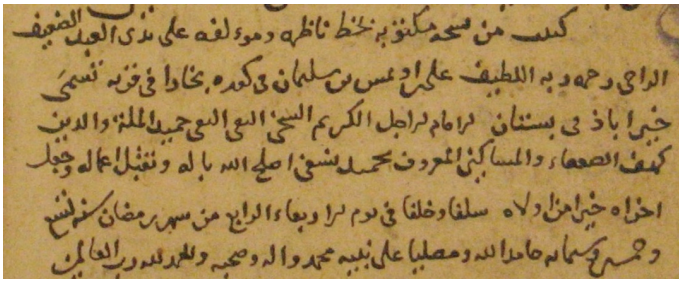 كتبت من نسخه مكتوبه بخط ناظمه ومولفه على يدى العبد الضعيف
الراجى رحمه ربه اللطيف على بن سليمان فى كوره بخارا فى قريه تسمى
خيراباذ فى بستان الامام الاجل الكريم السخى التقى النقى حميد الملة والدين
كهف الضعفاء والمساكين المعروف بحميد اصلح الله باله وتقبل اعماله وجعل
اخراه خيرا من اولاه سلفا وخلفا فى يوم الاربعاء الرابع من شهر رمضان سنه تسع
وخمسين وستمايه حامدا لله ومصليا على نبيه محمد واله وصحبه والحمد لله رب العالمين